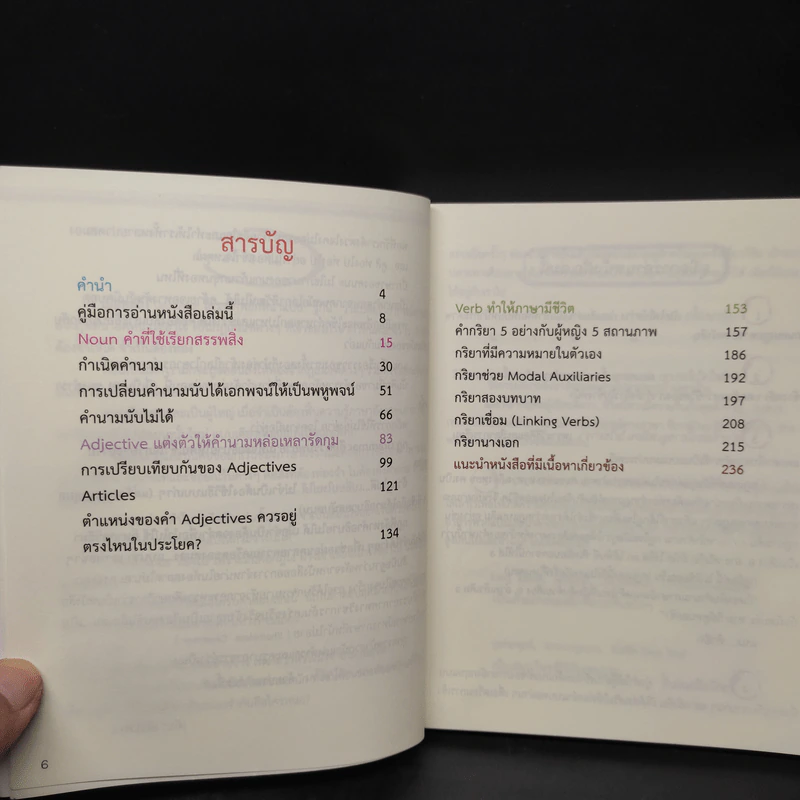 สารบัญ
คำนำ 4
คู่มือการอ่านหนังสือเล่มนี้ 8
Noun คำที่ใช้เรียกสรรพสิ่ง 15
กำเนิดคำนาม 30
การเปลี่ยนคำนามนับได้เอกพจน์ให้เป็นพหูพจน์ 51
คำนามนับไม่ได้ 66
Adjective แต่งตัวให้คำนามหล่อเหลารัดกุม 83
การเปรียบเทียบกันของ Adjectives 99
Articles 121
ตำแหน่งของคำ Adjectives ควรอยู่
ตรงไหนในประโยค? 134
6
Verb ทำให้ภาษามีชีวิต 153
คำกริยา 5 อย่างกับผู้หญิง 5 สถานภาพ 157
กริยาที่มีความหมายในตัวเอง 186
กริยาช่วย Modal Auxiliaries 192
กริยาสองบทบาท 197
กริยาเชื่อม (Linking Verbs) 208
กริยานางเอก 215
แนะนำหนังสือที่มีเนื้อหาเกี่ยวข้อง 236